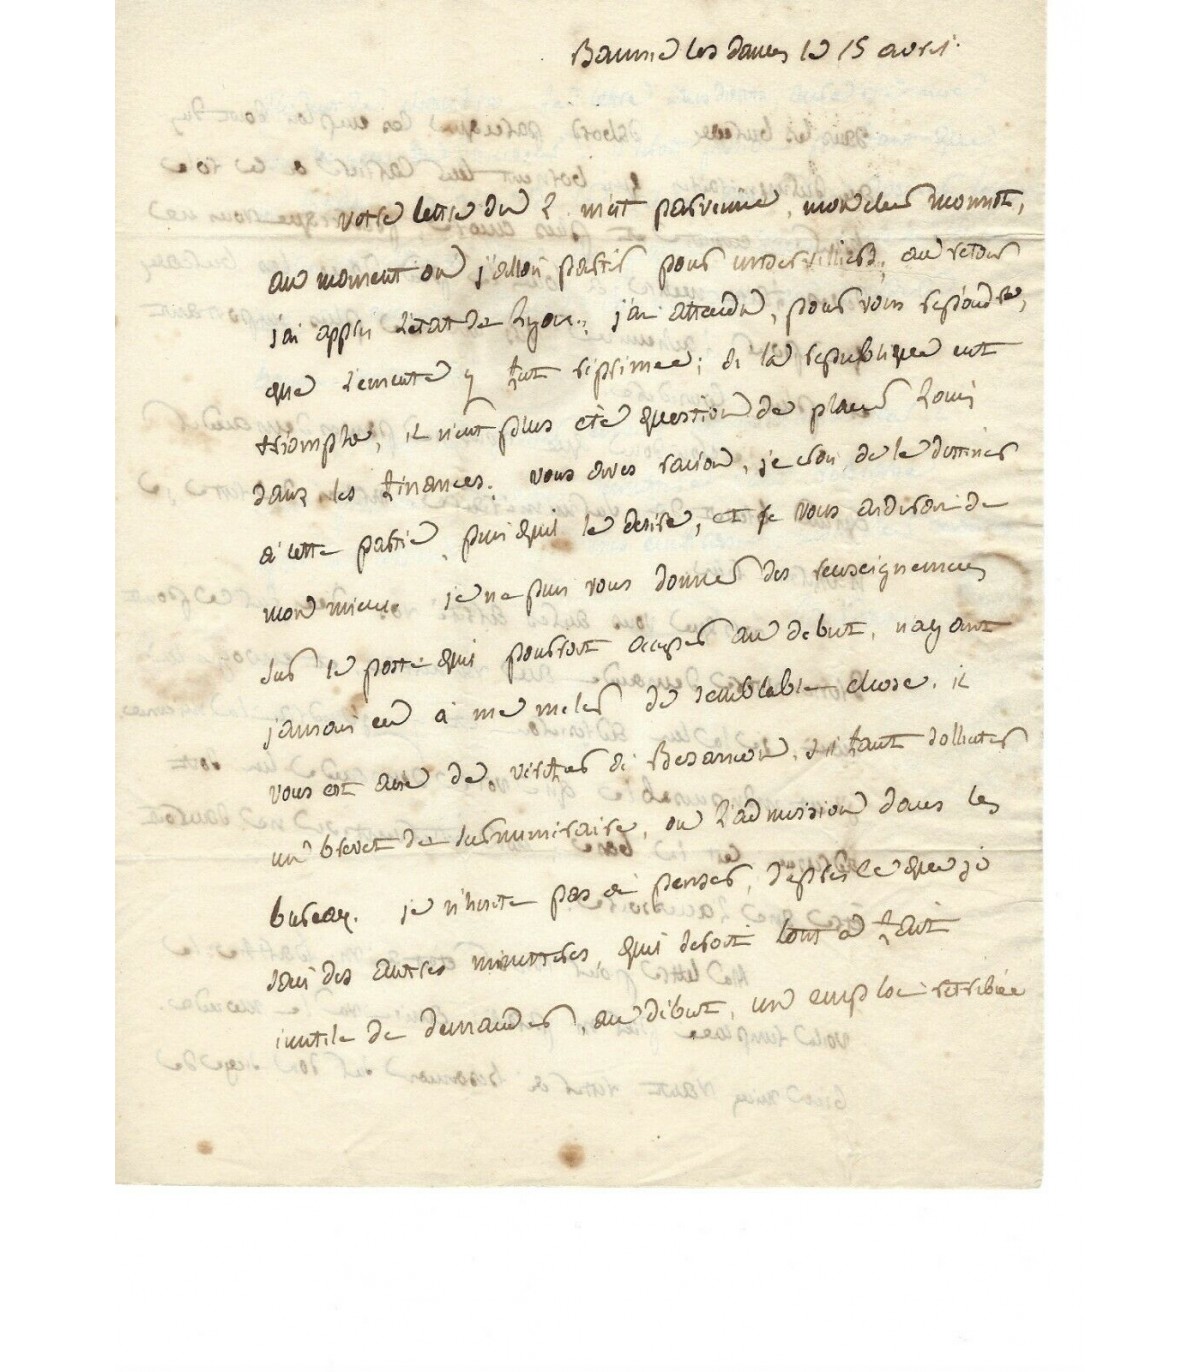 Baume les dames le 15 avril.
votre lettre du 2 m'est parvenue, mon cher monnot,
au moment ou j'allois partir pour , au retour
j'ai appris l'etat de Lyon; j'ai attendu, pour vous repondre,
que l'emeute y fut reprimee; si la republique eut
triomphé, il n'eut plus eté question de placer Louis
dans les finances. vous aves raison, je crois, de le destiner
a cette partie, puisqu'il le desire, et je vous aiderai de
mon mieux. je ne puis vous donner des renseignemens
sur le poste qu'il pourroit occuper au debut, n'ayant
jamais eu à me meler de semblable chose. il
vous est aisé de verifier a Besancon, s'il faut solliciter
un brevet de surnumeraire, ou l'admission dans les
bureaux. je n'hesite pas à penser, d'après ce que je
sais des autres ministeres, qu'il seroit tout à fait
inutile de demander, au début, un emploi retribué